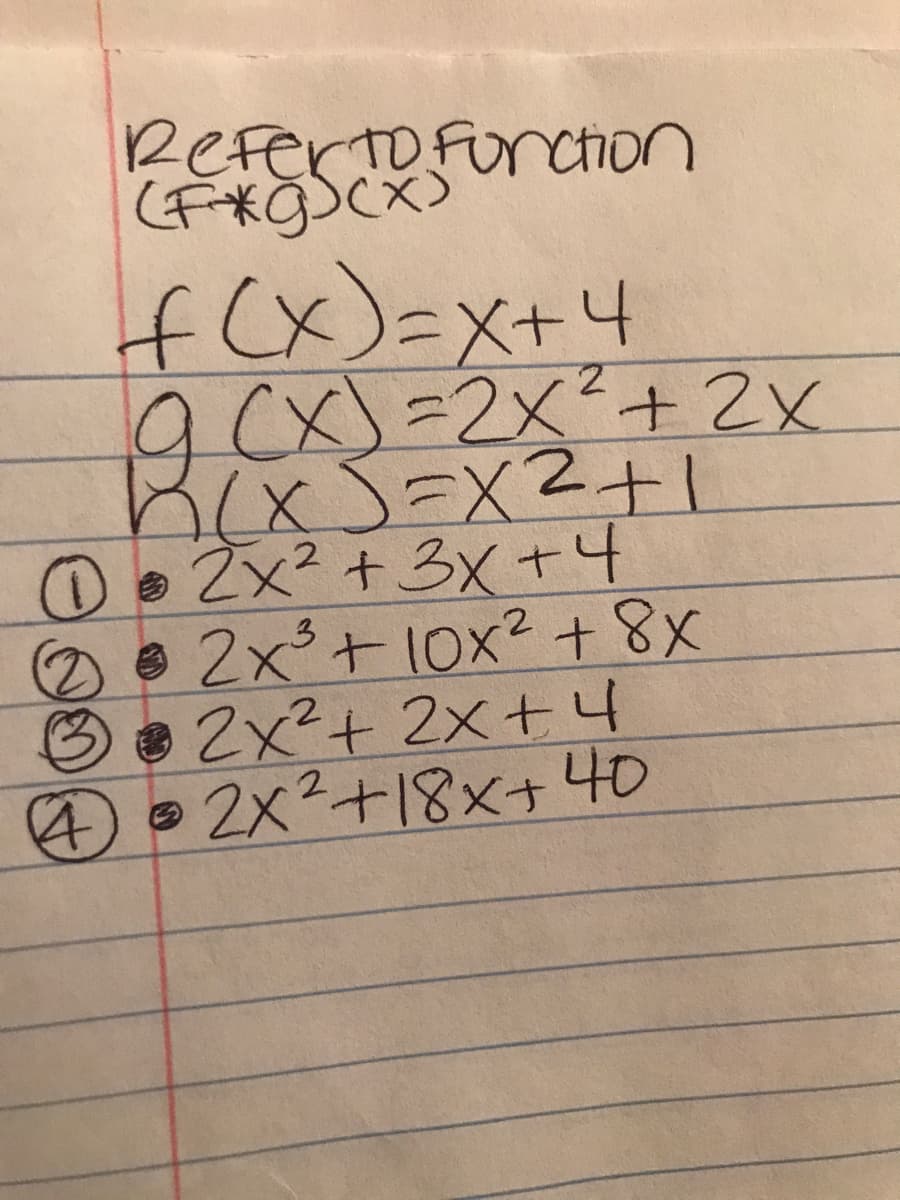 Refer to function
(F*g)(x)
f(x)=x+4
g(x)=2x²+2x
h(x)=x2+1
① • 2x²+3x+4
② • 2x³+10x²+8x
③ • 2x²+2x+4
④ • 2x²+18x+40